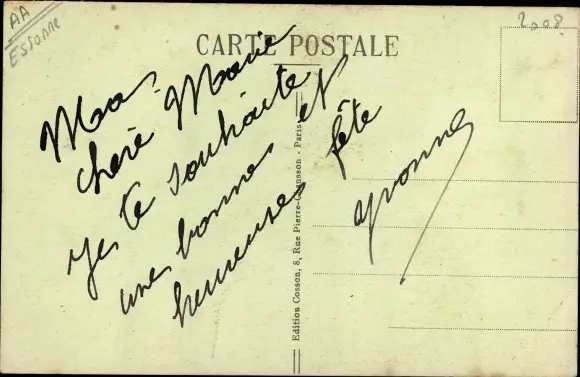 AA
Essonne
2008
CARTE POSTALE
Ma
chère Marie
je te souhaite
une bonne et
heureuse fête
Yvonne
Edition Cosson, 8, Rue Pierre-Chausson - Paris